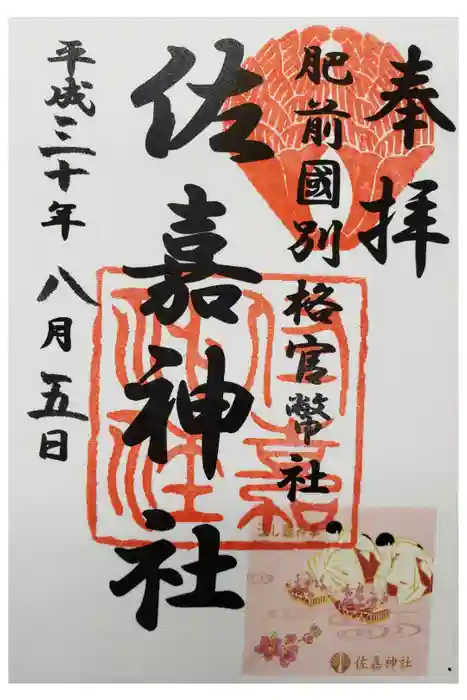 奉拝
肥前國別格官幣社
佐嘉神社
平成三十年八月五日
佐嘉神社
佐嘉神社